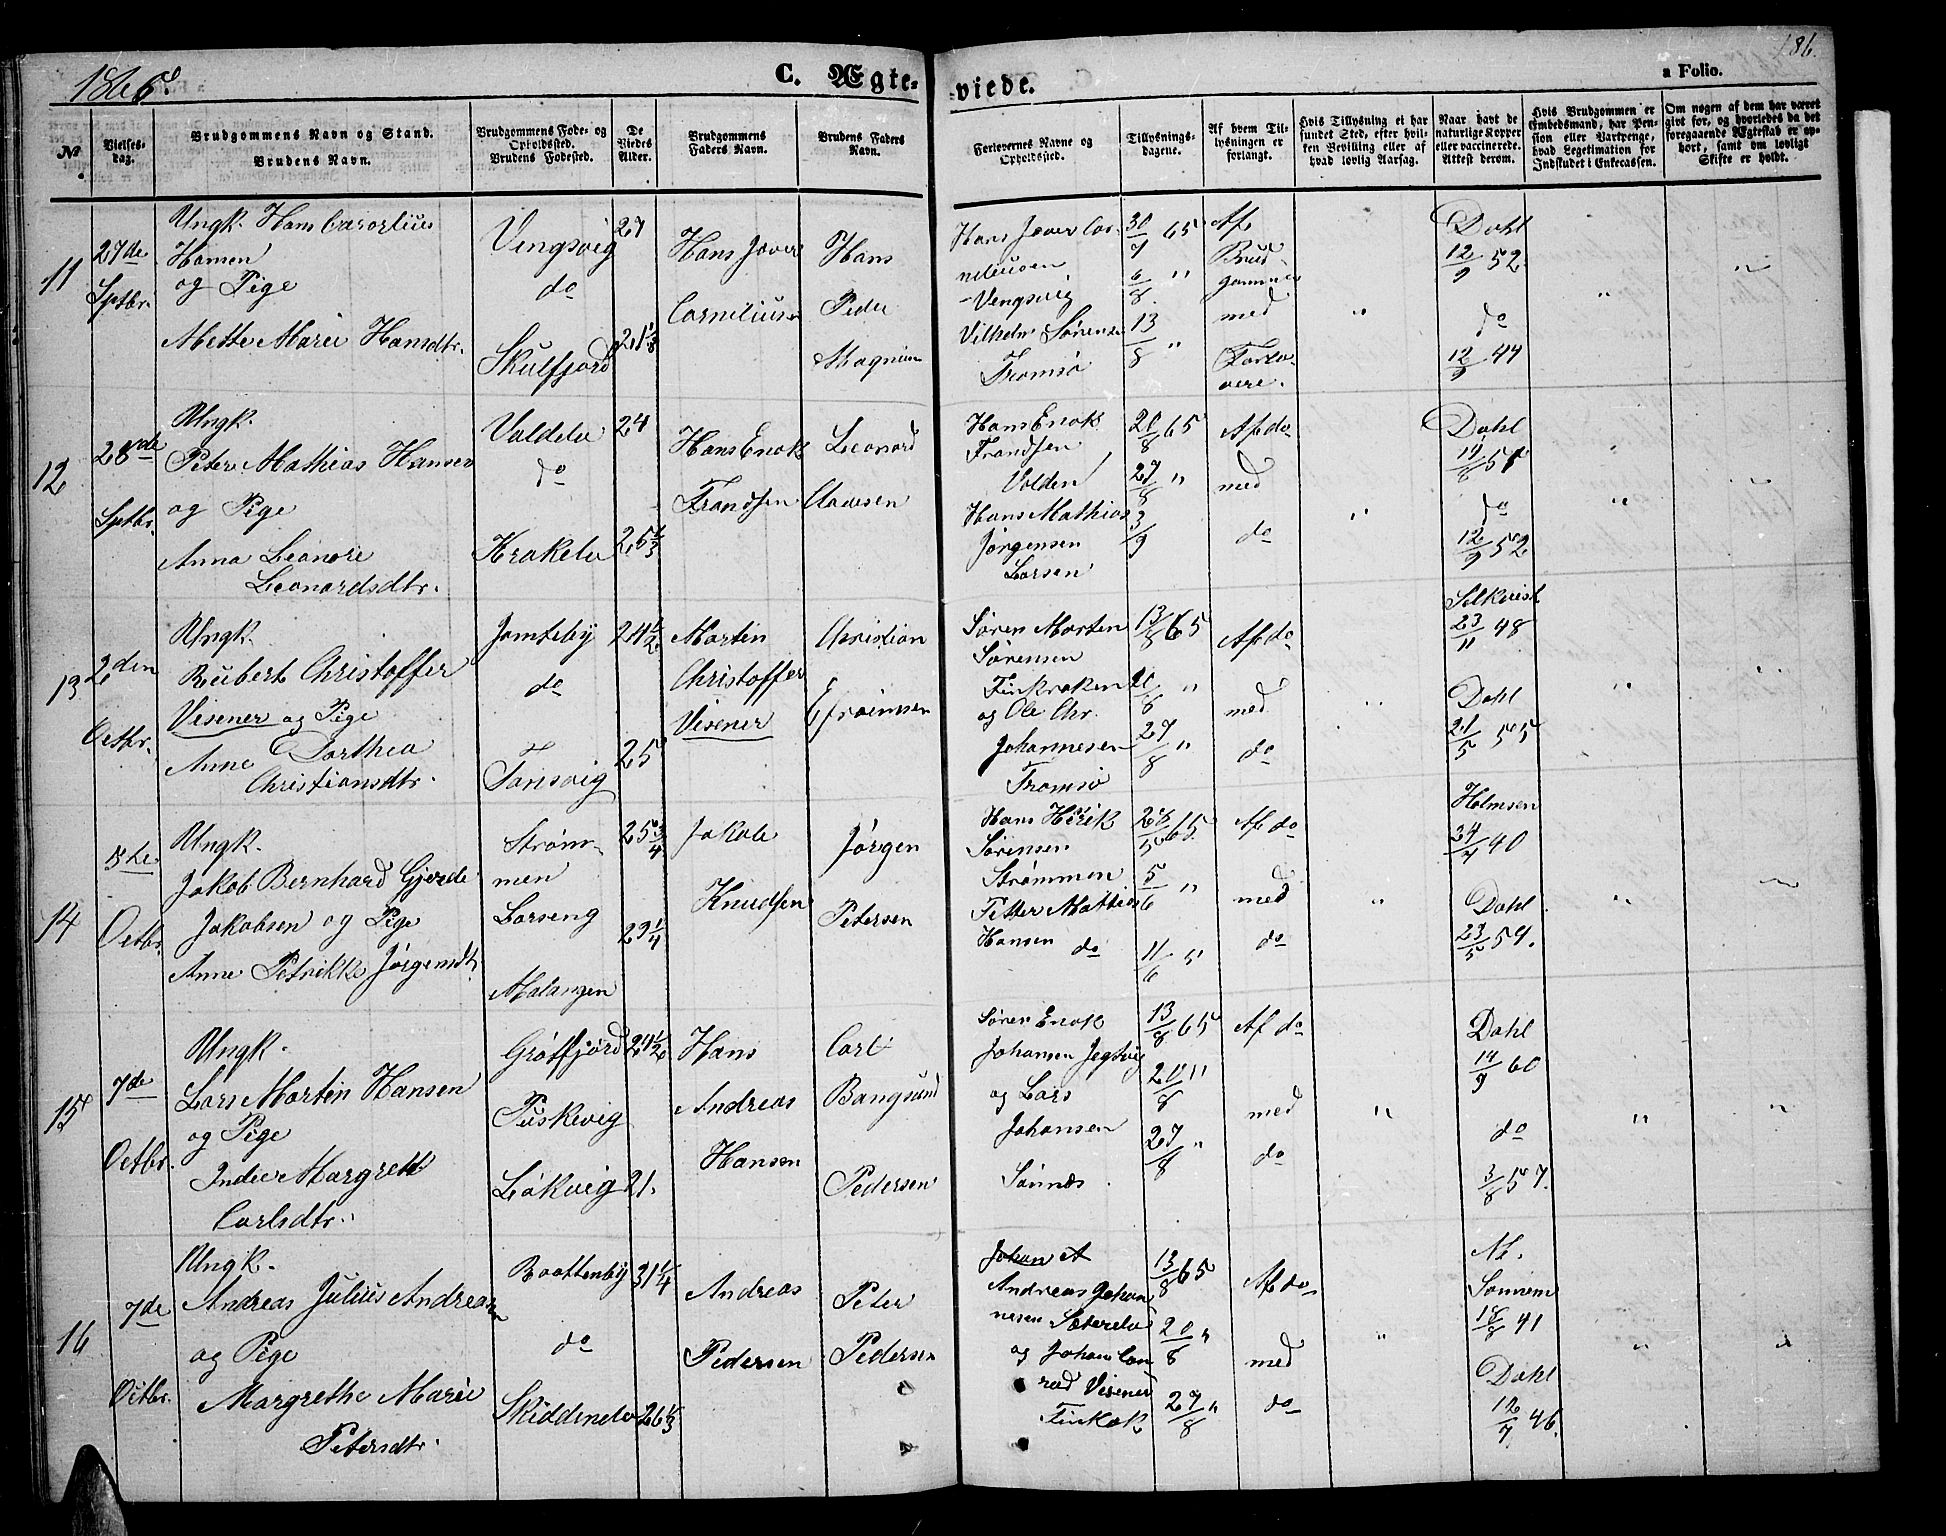 1865.
C. Ægte-
viede.
a Folio.
186.
No
Vielses-
dag.
Brudgommens Navn og Stand.
Brudens Navn.
Brudgommens Føde- og
Opholdssted.
Brudens Fødested.
De
Viedes
Alder.
Brudgommens
Faders Navn.
Brudens Faders
Navn.
Forlovernes Navne og
Opholdssted.
Tillysnings-
dagene.
Af hvem Til-
lysningen er
forlangt.
Hvis Tillysning ei har
fundet Sted, efter hvil-
ken Bevilling eller af
hvad lovlig Aarsag.
Naar havt de
naturlige Kopper
eller vaccinerede.
Attest derom.
Hvis Brudgommen er
Embedsmand, har Pen-
sion eller Vartpenge,
hvad Legitimation for
Indskudet i Enkecassen.
Om nogen af dem har været
gift før, og hvorledes da det
foregaaende Ægteskab er op-
hørt, samt om lovligt
Skifte er holdt.
11
27de
Sptbr.
Ungk. Hans
Hansen
og Pige
Mette Marie Hansdtr.
Vengsvig
do
Skulfjord
27
21 1/8
Hans Jøver
Corneliusen
Hans
Peder
Magnus
Hans Jøver Cor-
neliusen
Vengsvig
Vilhelm Sørensen
Tromsø
30/7 65
6/8 "
13/8 "
Af
Brud
gommen
med
Forlo-
vere.
"
Dahl
12/9 52.
do
12/9 44
"
"
12
28de
Sptbr.
Ungk.
Peter Mathias Hansen
og Pige
Anna Leonore
Leonardsdtr.
Volden
do
Krokelv
24
25 1/3
Hans Enok
Frandsen
Leonard
Clausen
Hans Enok
Frandsen
Volden
Hans Mathias
Jørgensen
Larsen
20/8 65
27/8 "
3/9
Af do
med
do
"
Dahl
19/8 51
do
12/9 52
"
"
13
2den
Octbr.
Ungk.
Rubert Christoffer
Visener og Pige
Anne Dorthea
Christiansdtr.
Jamteby
do
Tonsvig
24 1/2
25
Morten
Christoffer
Visener
Christian
Efraimsen
Søren Morten
Sørensen
Finkroken
og Ole Chr.
Johannesen
Tromsø
13/8 65
20/8 "
27/8 "
Af do
med
do
"
23/11 48
Dahl
21/5 55
"
"
14
5te
Octbr.
Ungk.
Jakob Bernhard Gjerde
Jakobsen og Pige
Anne Petrikke Jørgensdtr.
Strøm-
men
Larseng
Malangen
25 3/4
29 1/4
Jakob
Knudsen
Jørgen
Petersen
Hans
Sørensen
Strømmen
Petter Mathias
Hansen do
28/5 65.
5/6 "
11/6 "
Af do
med
do
"
Holmsen
24/7 40
Dahl
23/5 59.
"
"
15
7de
Octbr.
Ungk.
Lars Morten Hansen
og Pige
Margrete
Carlsdtr.
Grøtfjord
Puskevig
Løkvig
24 1/2
21.
Hans
Andreas
Hansen
Carl
Bangsund
Pedersen
Søren Enok
Johansen Jegtvig
og Lars
Johansen
Sønnes
13/8 65
20/8 "
27/8 "
Af do
med
do
"
Dahl
14/9 60
do
3/8 57.
"
"
16
7de
Octbr.
Ungk.
Andreas Julius Andreasen
og Pige
Margrethe Marie
Petersdtr.
do
Skiddenelv
31 1/4
26 1/3
Andreas
Pedersen
Peter
Pedersen
Johan A
Andreas Johan
nesen Sæterelv
og Johan Con
rad Visener
13/8 65
20/8 "
27/8 "
Af do
med
do
"
18/8 41
Dahl
12/7 46.
"
"